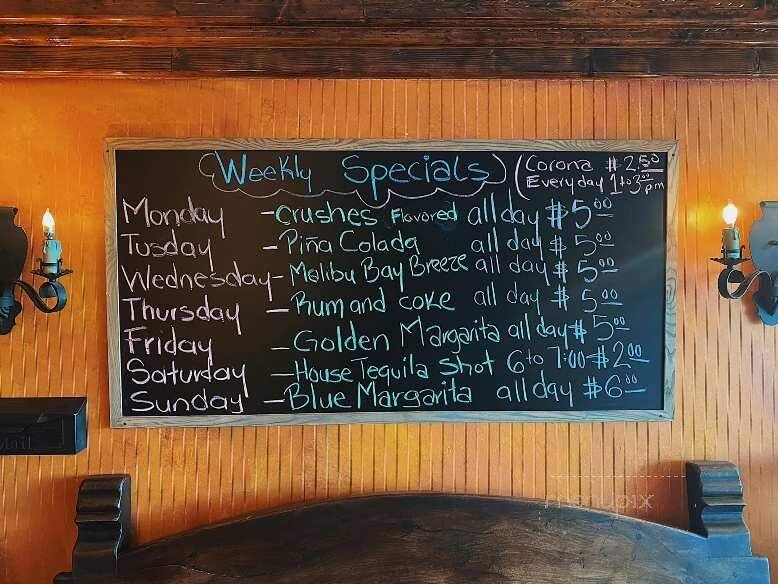 Weekly Specials (Corona $2.50
Everyday 1 to 3:00 pm
Monday - Crushes Flavored all day $5.00
Tusday - Piña Colada all day $5.00
Wednesday - Malibu Bay Breeze all day $5.00
Thursday - Rum and coke all day $5.00
Friday - Golden Margarita all day $5.00
Saturday - House Tequila Shot 6 to 7:00 - $2.00
Sunday - Blue Margarita all day $6.00
Mail
menupix